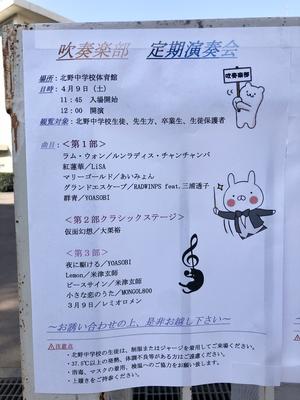 吹奏楽部 定期演奏会
場所：北野中学校体育館
日時：４月９日（土）
１１：４５ 入場開始
１２：００ 開演
観覧対象：北野中学校生徒、先生方、卒業生、生徒保護者
吹奏楽部
曲目：＜第１部＞
ラム・ウォン／ルンラディス・チャンチャンパ
紅蓮華／LiSA
マリーゴールド／あいみょん
グランドエスケープ／RADWINPS feat.三浦透子
群青／YOASOBI
＜第２部クラシックステージ＞
仮面幻想／大栗裕
＜第３部＞
夜に駆ける／YOASOBI
Lemon／米津玄師
ピースサイン／米津玄師
小さな恋のうた／MONGOL800
３月９日／レミオロメン
～お誘い合わせの上、是非お越し下さい～
⚠注意点
・北野中学校の生徒は、制服またはジャージを着用してご来場ください。
・37.5℃以上の発熱、体調不良等がある方はご遠慮ください。
・消毒、マスクの着用、検温へのご協力をお願い致します。
・上履きをご持参ください。